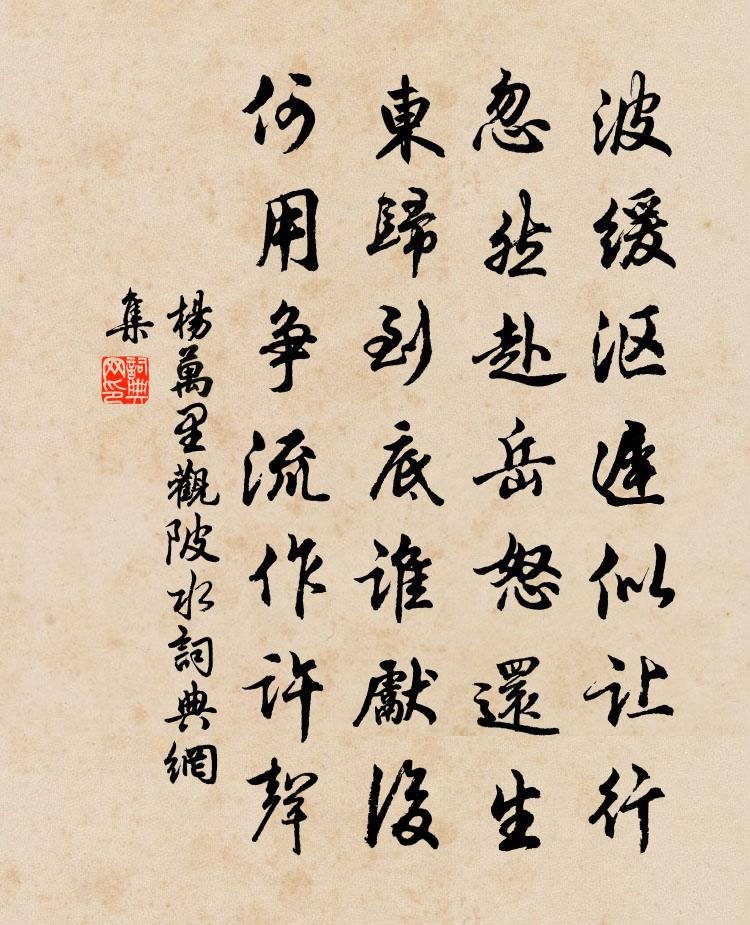 波緩漚遲似让行
忽然赴岳怒還生
東歸到底誰獻後
何用争流作許聲
楊萬里觀陂水詞典網
集
詞典
网印